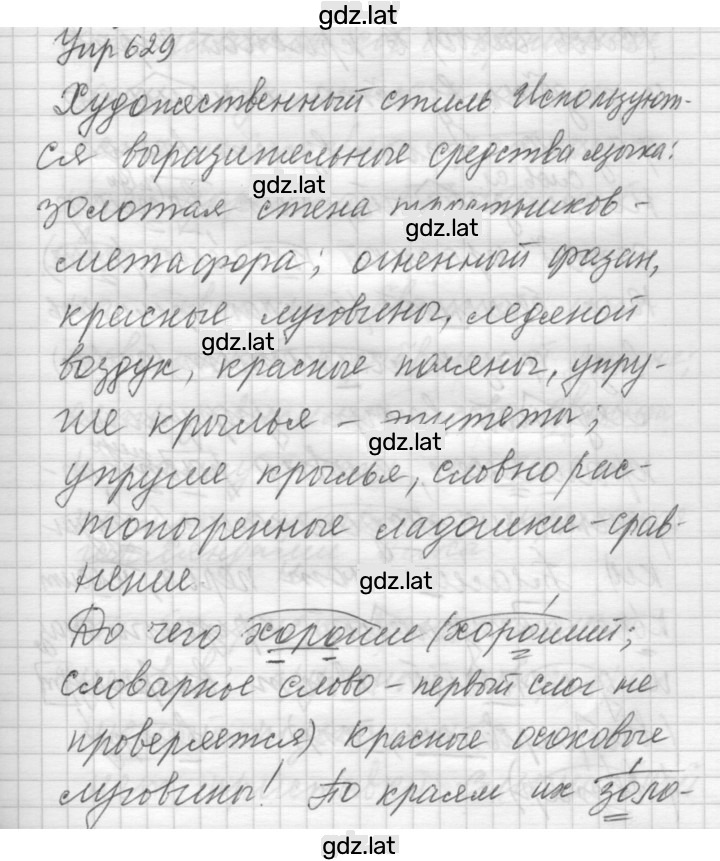 gdz.lat
Упр 629
Художественный стиль. Используют-
ся выразительные средства языка:
gdz.lat
золотая стена тростников -
gdz.lat
метафора; огненный фазан,
красные луговины, ледяной
gdz.lat
воздух, красные поляны, упру-
гие крылья - эпитеты;
gdz.lat
упругие крылья, словно рас-
топыренные ладошки - срав-
нение.
gdz.lat
До чего хороши (хороший;
словарное слово - первый слог не
проверяется) красные осоковые
луговины! По краям их золо-
gdz.lat